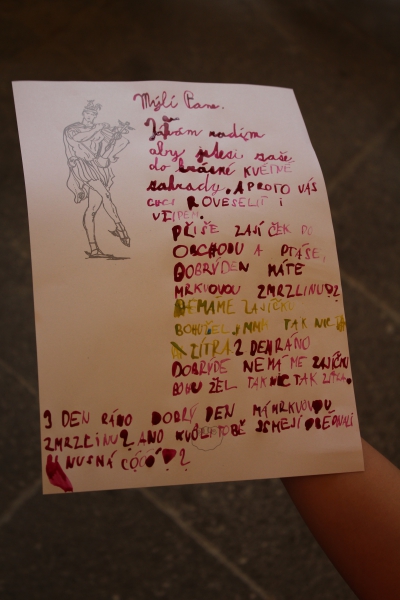 Mýlí Pane.
Já vám radím
aby jste si zašli
do krásné KVĚTNÉ
zahrady. A PROTO VÁS
CHCI ROVESELIT I
VTIPEM.
PŘIŠE ZAJÍČEK DO
OBCHODU A PTÁSE,
DOBRÝDEN MÁTE
MRKVOVOU ZMRZLINU?
NEMÁME ZAJÍČKU
BOHUŽEL, MMM TAK NIC
ZÍTRA 2 DEN RÁNO
DOBRÝDE NEMÁME ZAJÍČKU
BOHUŽEL TAK NIC TAK ZÍTRA.
3 DEN RÁNO DOBRÝ DEN MÁ MRKVOVOU
ZMRZLINU? ANO KVŮLI TOBĚ JSMEJI OBĚDNALI
HNUSNÁ CO